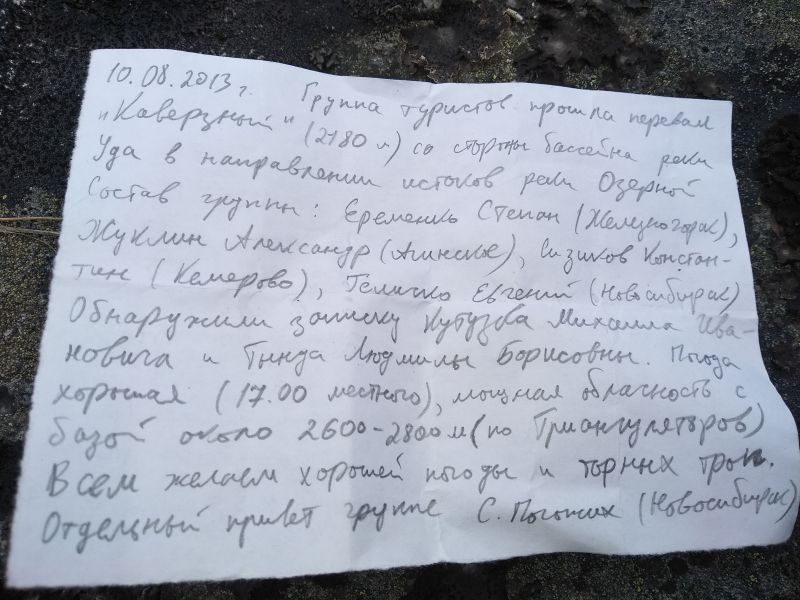 10.08.2013 г. Группа туристов прошла перевал
"Каверзный" (2180 м) со стороны бассейна реки
Уда в направлении истоков реки Озерной
Состав группы: Еременко Степан (Железногорск),
Жуклин Александр (Агинское), Сизиков Констан-
тин (Кемерово), Евгений (Новосибирск)
Обнаружили записку Михаила Ива-
новича и Тында Людмилы Борисовны. Погода
хорошая (17.00 местного), мощная облачность с
базой около 2600-2800 м (по Триангуляторов)
Всем желаем хорошей погоды и торных троп.
Отдельный привет группе С. (Новосибирск)